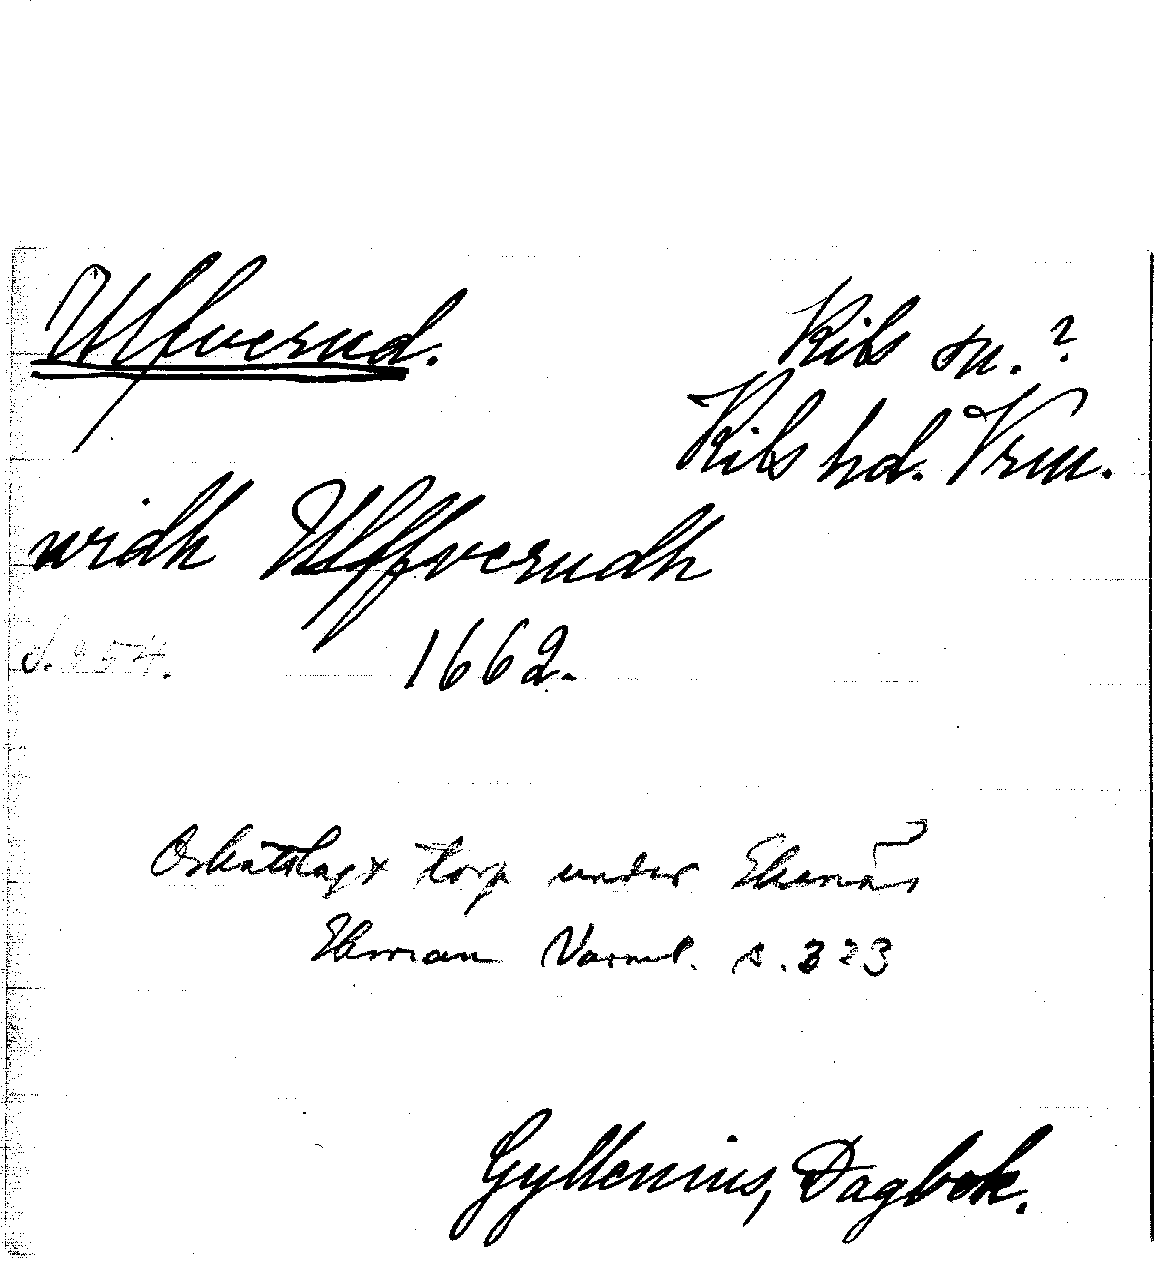 Ulfverud.
Kils sn. ?
Kils hd. Vrm.
widh Ulffverudh
s. 254.
1662.
Oskattlagt torp under Ekenäs
Ferrman Värml. s. 323
Gyllenius, Dagbok.